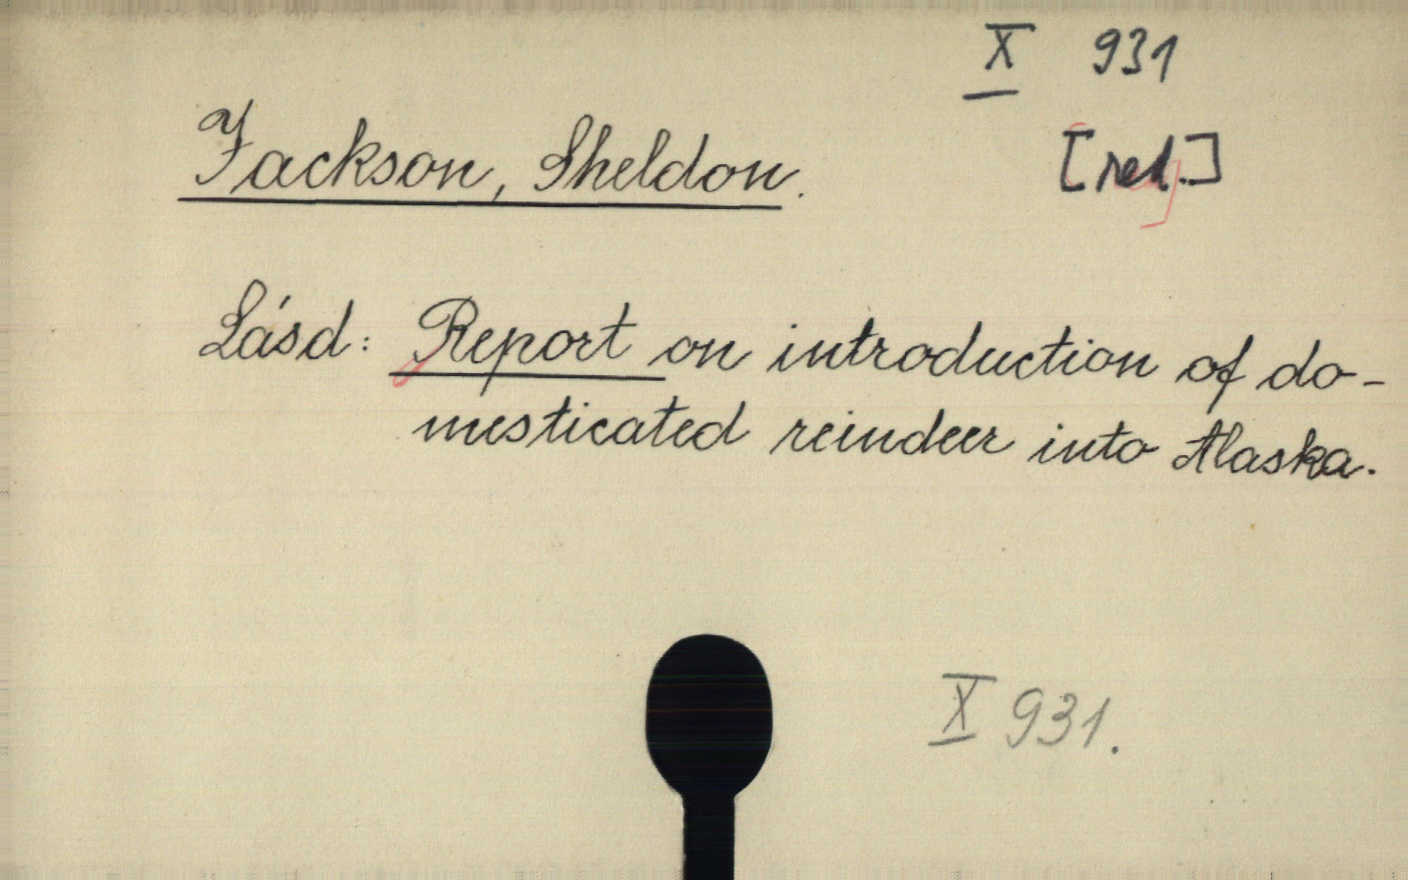 X 931
Jackson, Sheldon.
[ret.]
Lásd: Report on introduction of do-
mesticated reindeer into Alaska.
X 931.